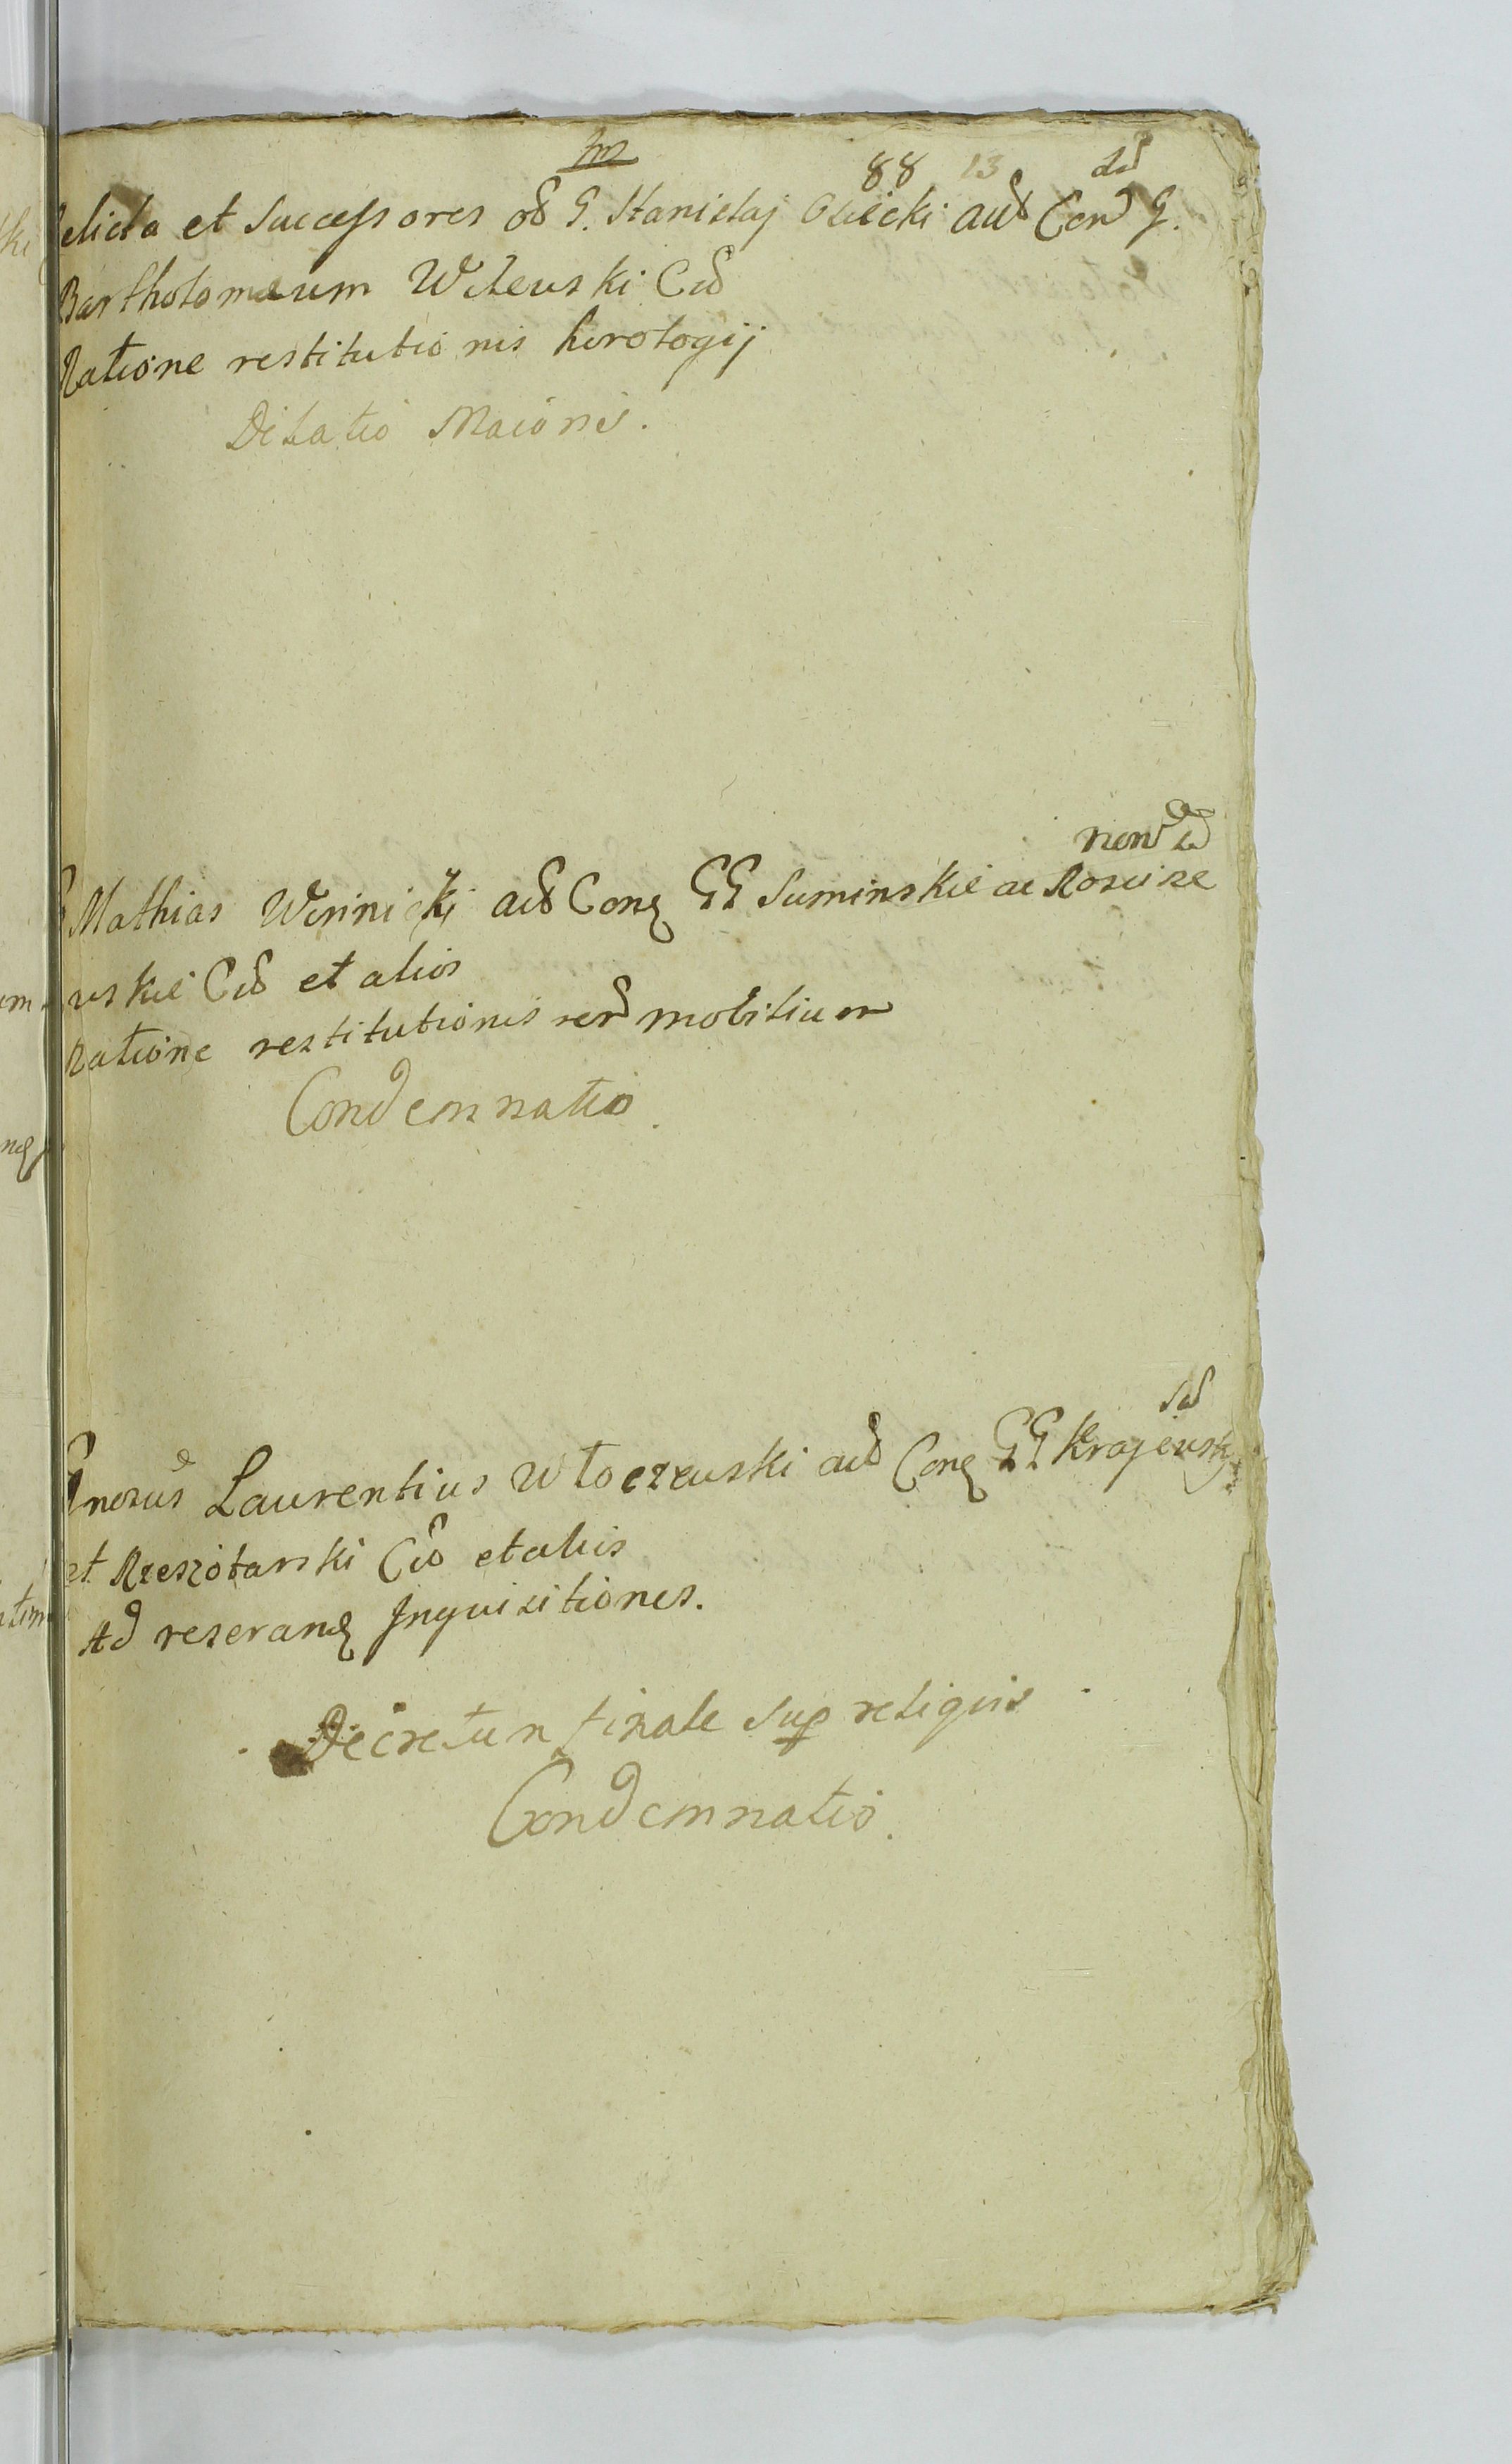 88 13
elicta et Successores od G. Stanislaj Osiecki aud Con G.
Bartholomæum Wilewski Cid
Ratione restitutionis horologij
Dilatio Maioris.
non
Mathias Winnicki acd Conq GG Suminskie ac Roscisze
wskie Cid et alios
Ratione restitutionis rerd mobilium
Condemnatio.
Gnosus Laurentius Wloczewski acd Conq GG Krajewski
et Rzeszotarski Cid et aliis
Ad reserandq Inquisitiones.
Decretum finale sup reliquis
Condemnatio.